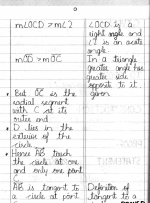 m∠OCD > m∠2
∠OCD is a
right angle and
∠2 is an acute
angle.
mOD > mOC
In a triangle
greater angle has
greater side
opposite to it
given
• But OC is the
radial segment
with C at its
outer end
• D lies in the
exterior of the
circle
• Hence AB touch
the circle at one
and only one point
AB is tangent to
a circle at point
Definition of
tangent to a